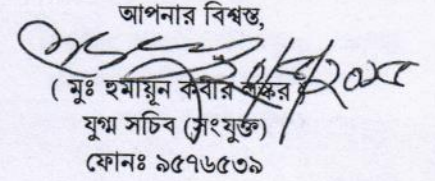 আপনার বিশ্বস্ত,
( মুঃ হুমায়ূন কবীর
যুগ্ম সচিব (সংযুক্ত)
ফোনঃ ৯৫৭৬৫৩৯